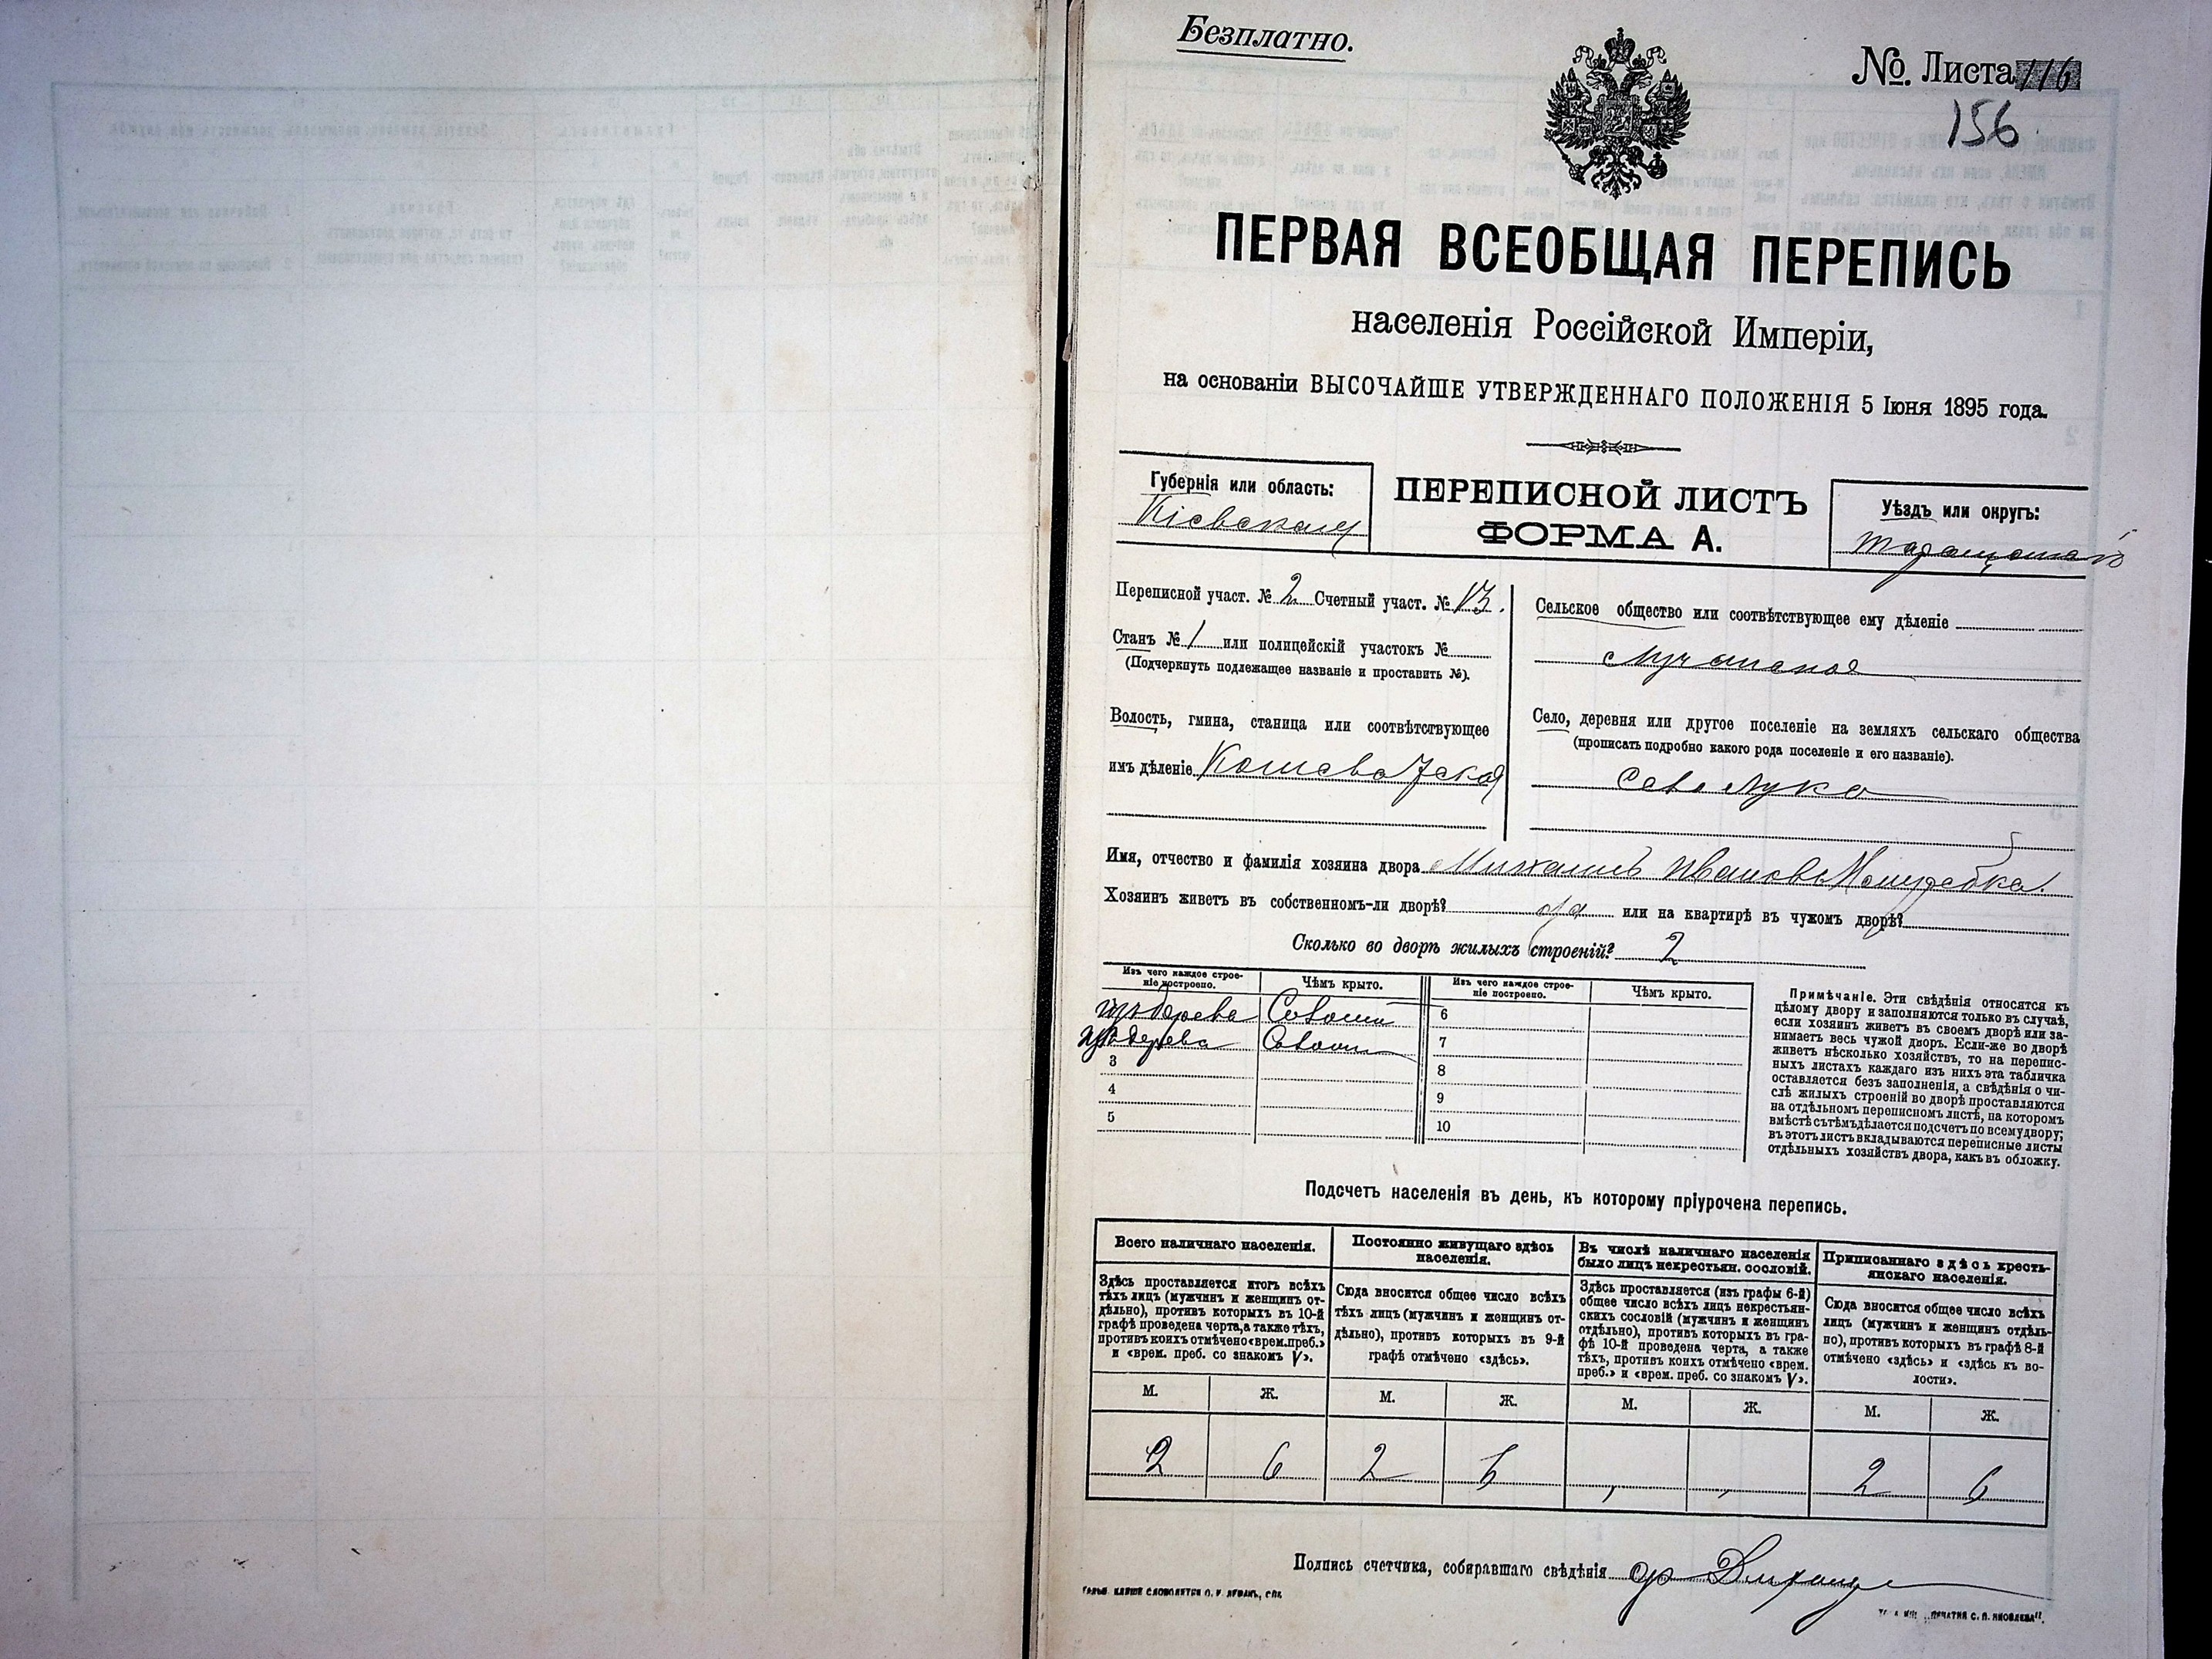 Безплатно.
№. Листа 116
156
ПЕРВАЯ ВСЕОБЩАЯ ПЕРЕПИСЬ
населенія Россійской Имперіи,
на основаніи ВЫСОЧАЙШЕ УТВЕРЖДЕННАГО ПОЛОЖЕНІЯ 5 Іюня 1895 года.
Губернія или область:
Кіевская
ПЕРЕПИСНОЙ ЛИСТЪ
ФОРМА А.
Уѣздъ или округъ:
Таращанскій
Переписной участ. № 2 Счетный участ. № 13.
Станъ № 1 или полицейскій участокъ №
(Подчеркнуть подлежащее названіе и проставить №).
Волость, гмина, станица или соотвѣтствующее
имъ дѣленіе Кошеватская
Сельское общество или соотвѣтствующее ему дѣленіе
Лучанское
Село, деревня или другое поселеніе на земляхъ сельскаго общества
(прописать подробно какого рода поселеніе и его названіе).
Село Лука
Имя, отчество и фамилія хозяина двора Михаилъ Ивановъ
Хозяинъ живетъ въ собственномъ-ли дворѣ? да или на квартирѣ въ чужомъ дворѣ?
Сколько во дворѣ жилыхъ строеній? 2
Изъ чего каждое строе-
ніе построено.
Чѣмъ крыто.
Изъ чего каждое строе-
ніе построено.
Чѣмъ крыто.
изъ дерева Соломы 6
изъ дерева Соломы 7
3 8
4 9
5 10
Примѣчаніе. Эти свѣдѣнія относятся къ
цѣлому двору и заполняются только въ случаѣ,
если хозяинъ живетъ въ своемъ дворѣ или за-
нимаетъ весь чужой дворъ. Если-же во дворѣ
живетъ нѣсколько хозяйствъ, то на перепис-
ныхъ листахъ каждаго изъ нихъ эта табличка
оставляется безъ заполненія, а свѣдѣнія о чи-
слѣ жилыхъ строеній во дворѣ проставляются
на отдѣльномъ переписномъ листѣ, на которомъ
вмѣстѣ съ тѣмъ дѣлается подсчетъ по всему двору;
въ этотъ листъ вкладываются переписные листы
отдѣльныхъ хозяйствъ двора, какъ въ обложку.
Подсчетъ населенія въ день, къ которому пріурочена перепись.
Всего наличнаго населенія.
Здѣсь проставляется итогъ всѣхъ
тѣхъ лицъ (мужчинъ и женщинъ от-
дѣльно), противъ которыхъ въ 10-й
графѣ проведена черта, а также тѣхъ,
противъ коихъ отмѣчено «врем. преб.»
и «врем. преб. со знакомъ V».
Постоянно живущаго здѣсь
населенія.
Сюда вносится общее число всѣхъ
тѣхъ лицъ (мужчинъ и женщинъ от-
дѣльно), противъ которыхъ въ 9-й
графѣ отмѣчено «здѣсь».
Въ числѣ наличнаго населенія
было лицъ некрестьян. сословій.
Здѣсь проставляется (изъ графы 6-й)
общее число всѣхъ лицъ некрестьян-
скихъ сословій (мужчинъ и женщинъ
отдѣльно), противъ которыхъ въ гра-
фѣ 10-й проведена черта, а также
тѣхъ, противъ коихъ отмѣчено «врем.
преб.» и «врем. преб. со знакомъ V».
Приписаннаго здѣсь кресть-
янскаго населенія.
Сюда вносится общее число всѣхъ
лицъ (мужчинъ и женщинъ отдѣль-
но), противъ которыхъ въ графѣ 8-й
отмѣчено «здѣсь» и «здѣсь къ во-
лости».
М. Ж. М. Ж. М. Ж. М. Ж.
2 6 2 6 2 6
Подпись счетчика, собиравшаго свѣдѣнія